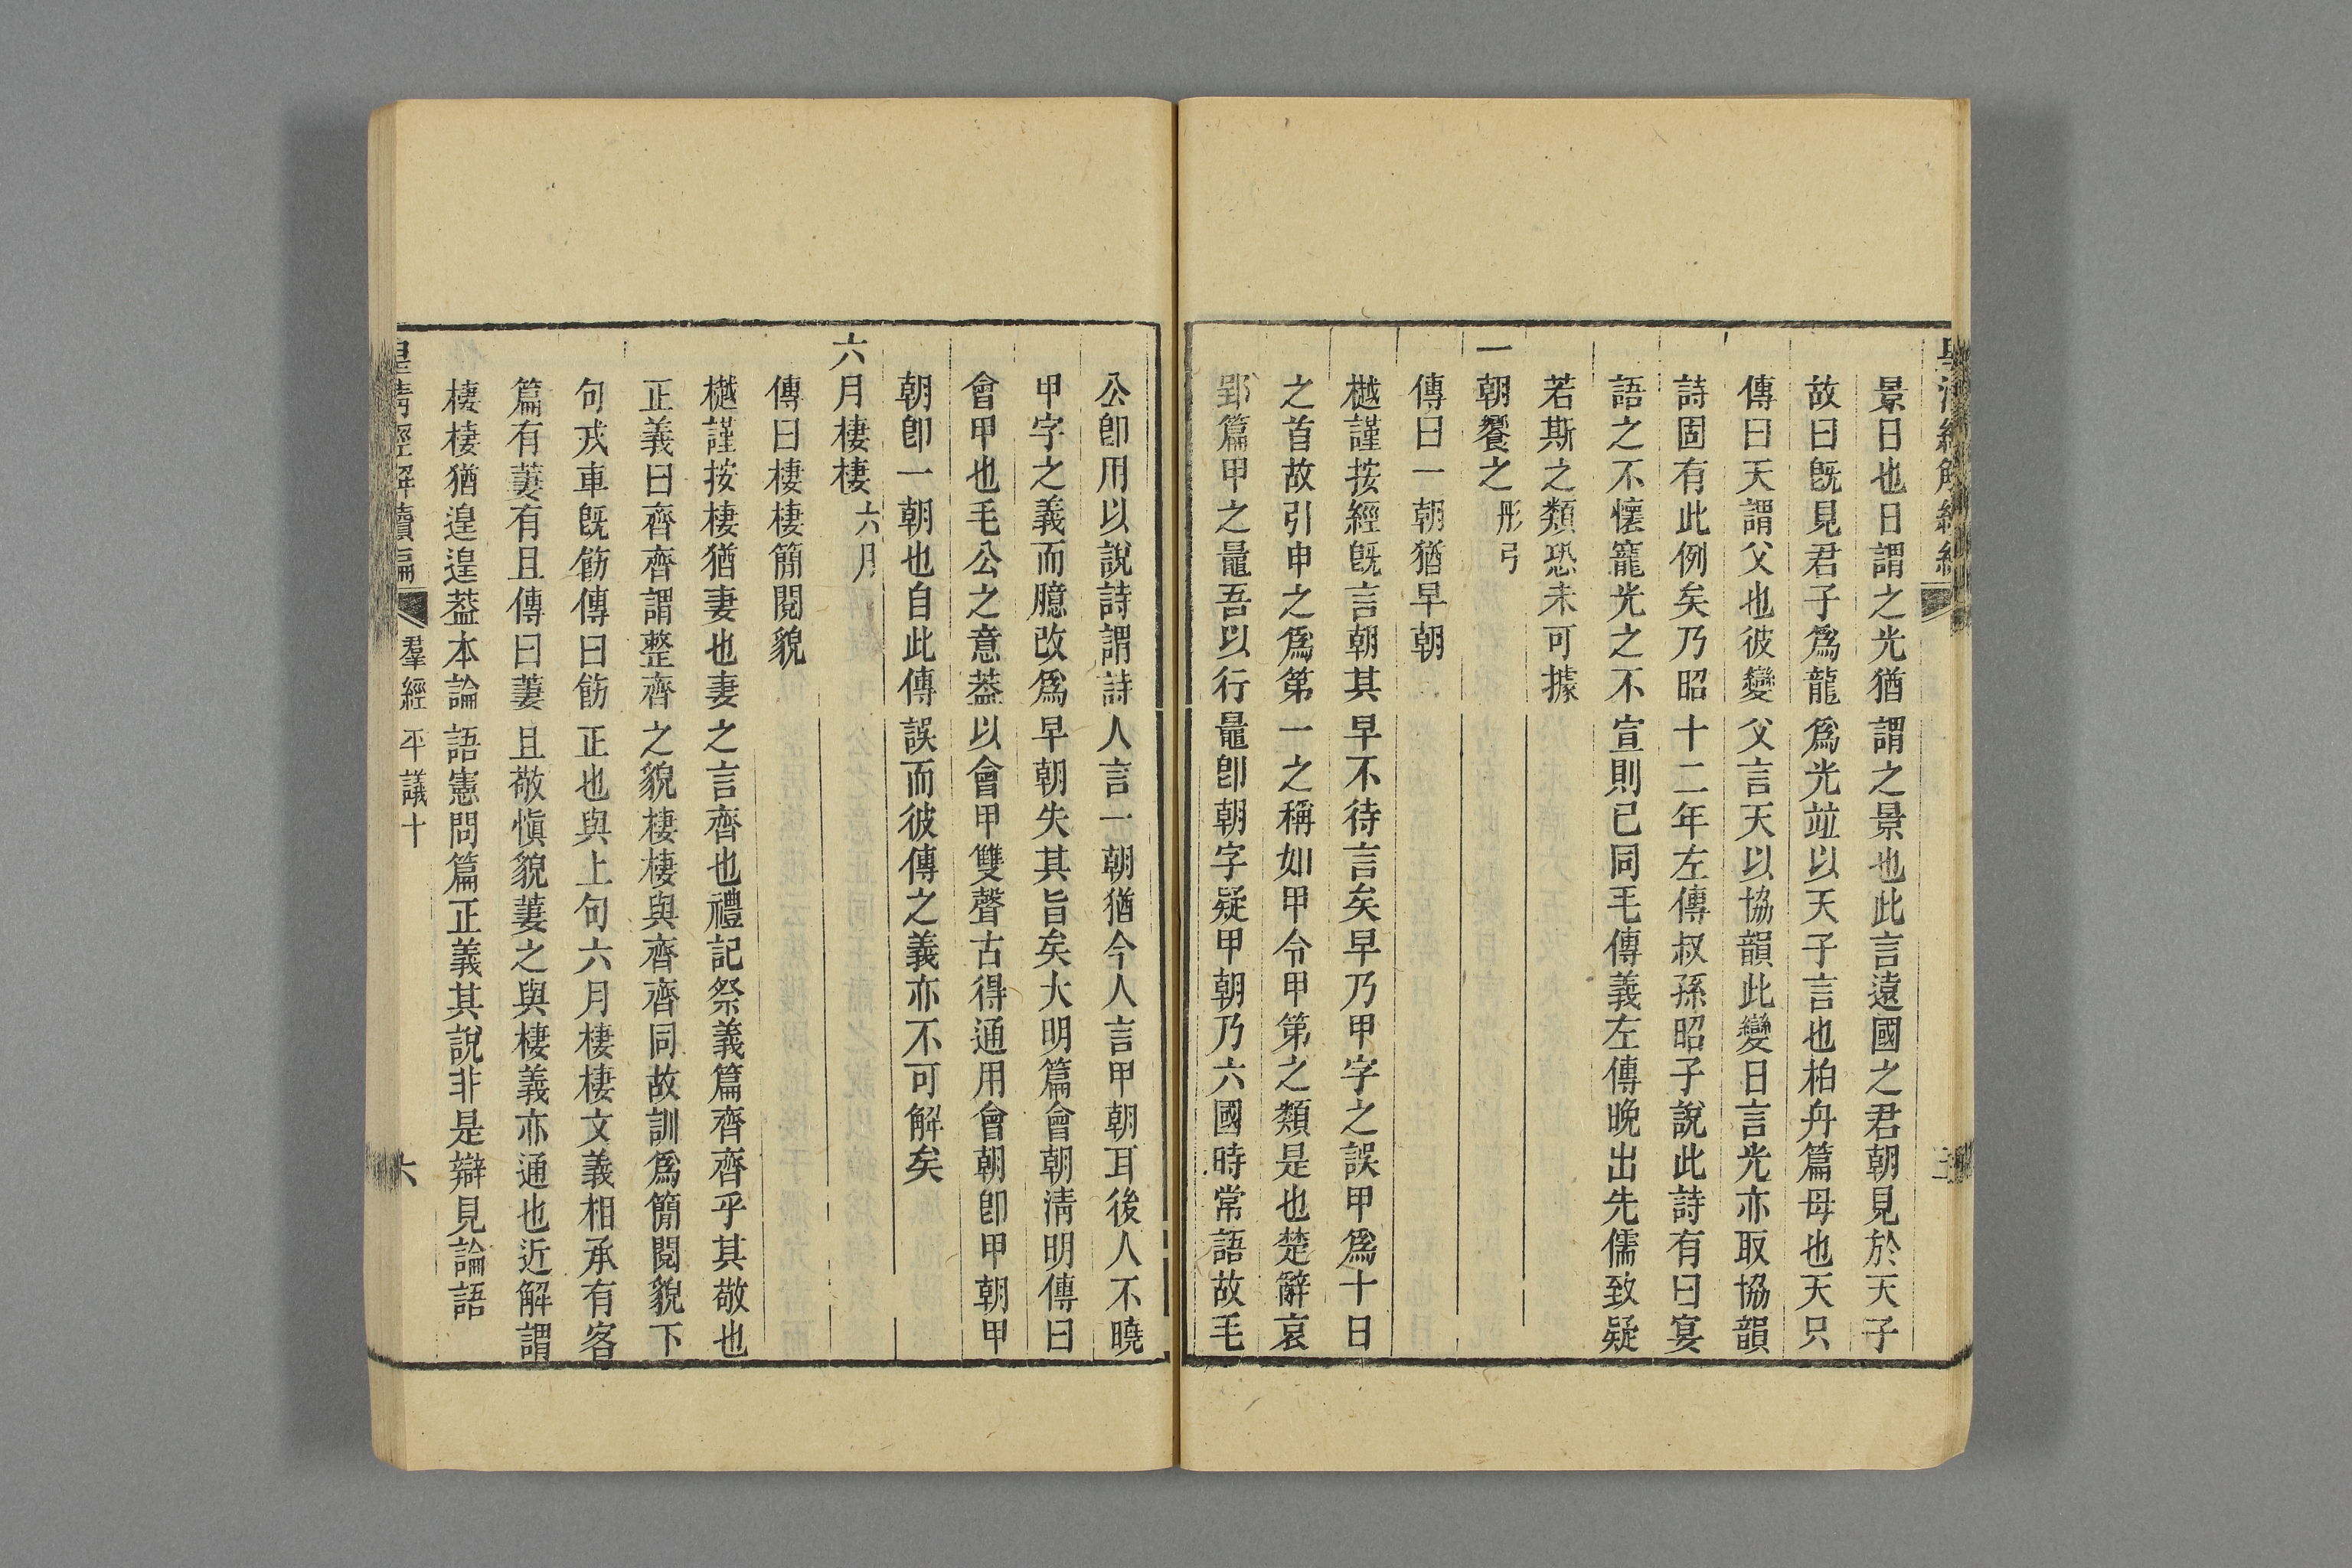 景日也日謂之光猶謂之景也此言遠國之君朝見於天子
故曰旣見君子爲龍爲光竝以天子言也柏舟篇母也天只
傳曰天謂父也彼變父言天以協韻此變日言光亦取協韻
詩固有此例矣乃昭十二年左傳叔孫昭子說此詩有曰宴
語之不懷寵光之不宣則已同毛傳義左傳晚出先儒致疑
若斯之類恐未可據
一朝饗之 彤弓
傳曰一朝猶早朝
樾謹按經旣言朝其早不待言矣早乃甲字之誤甲爲十日
之首故引申之爲第一之稱如甲令甲第之類是也楚辭哀
郢篇甲之鼂吾以行鼂卽朝字疑甲朝乃六國時常語故毛
公卽用以說詩謂詩人言一朝猶今人言甲朝耳後人不曉
甲字之義而臆改爲早朝失其旨矣大明篇會朝淸明傳曰
會甲也毛公之意葢以會甲雙聲古得通用會朝卽甲朝甲
朝卽一朝也自此傳誤而彼傳之義亦不可解矣
六月棲棲 六月
傳曰棲棲簡閱貌
樾謹按棲猶妻也妻之言齊也禮記祭義篇齊齊乎其敬也
正義曰齊齊謂整齊之貌棲棲與齊齊同故訓爲簡閱貌下
句戎車旣飭傳曰飭正也與上句六月棲棲文義相承有客
篇有萋有且傳曰萋且敬愼貌萋之與棲義亦通也近解謂
棲棲猶遑遑葢本論語憲問篇正義其說非是辯見論語
皇淸經解續編 羣經平議十 六